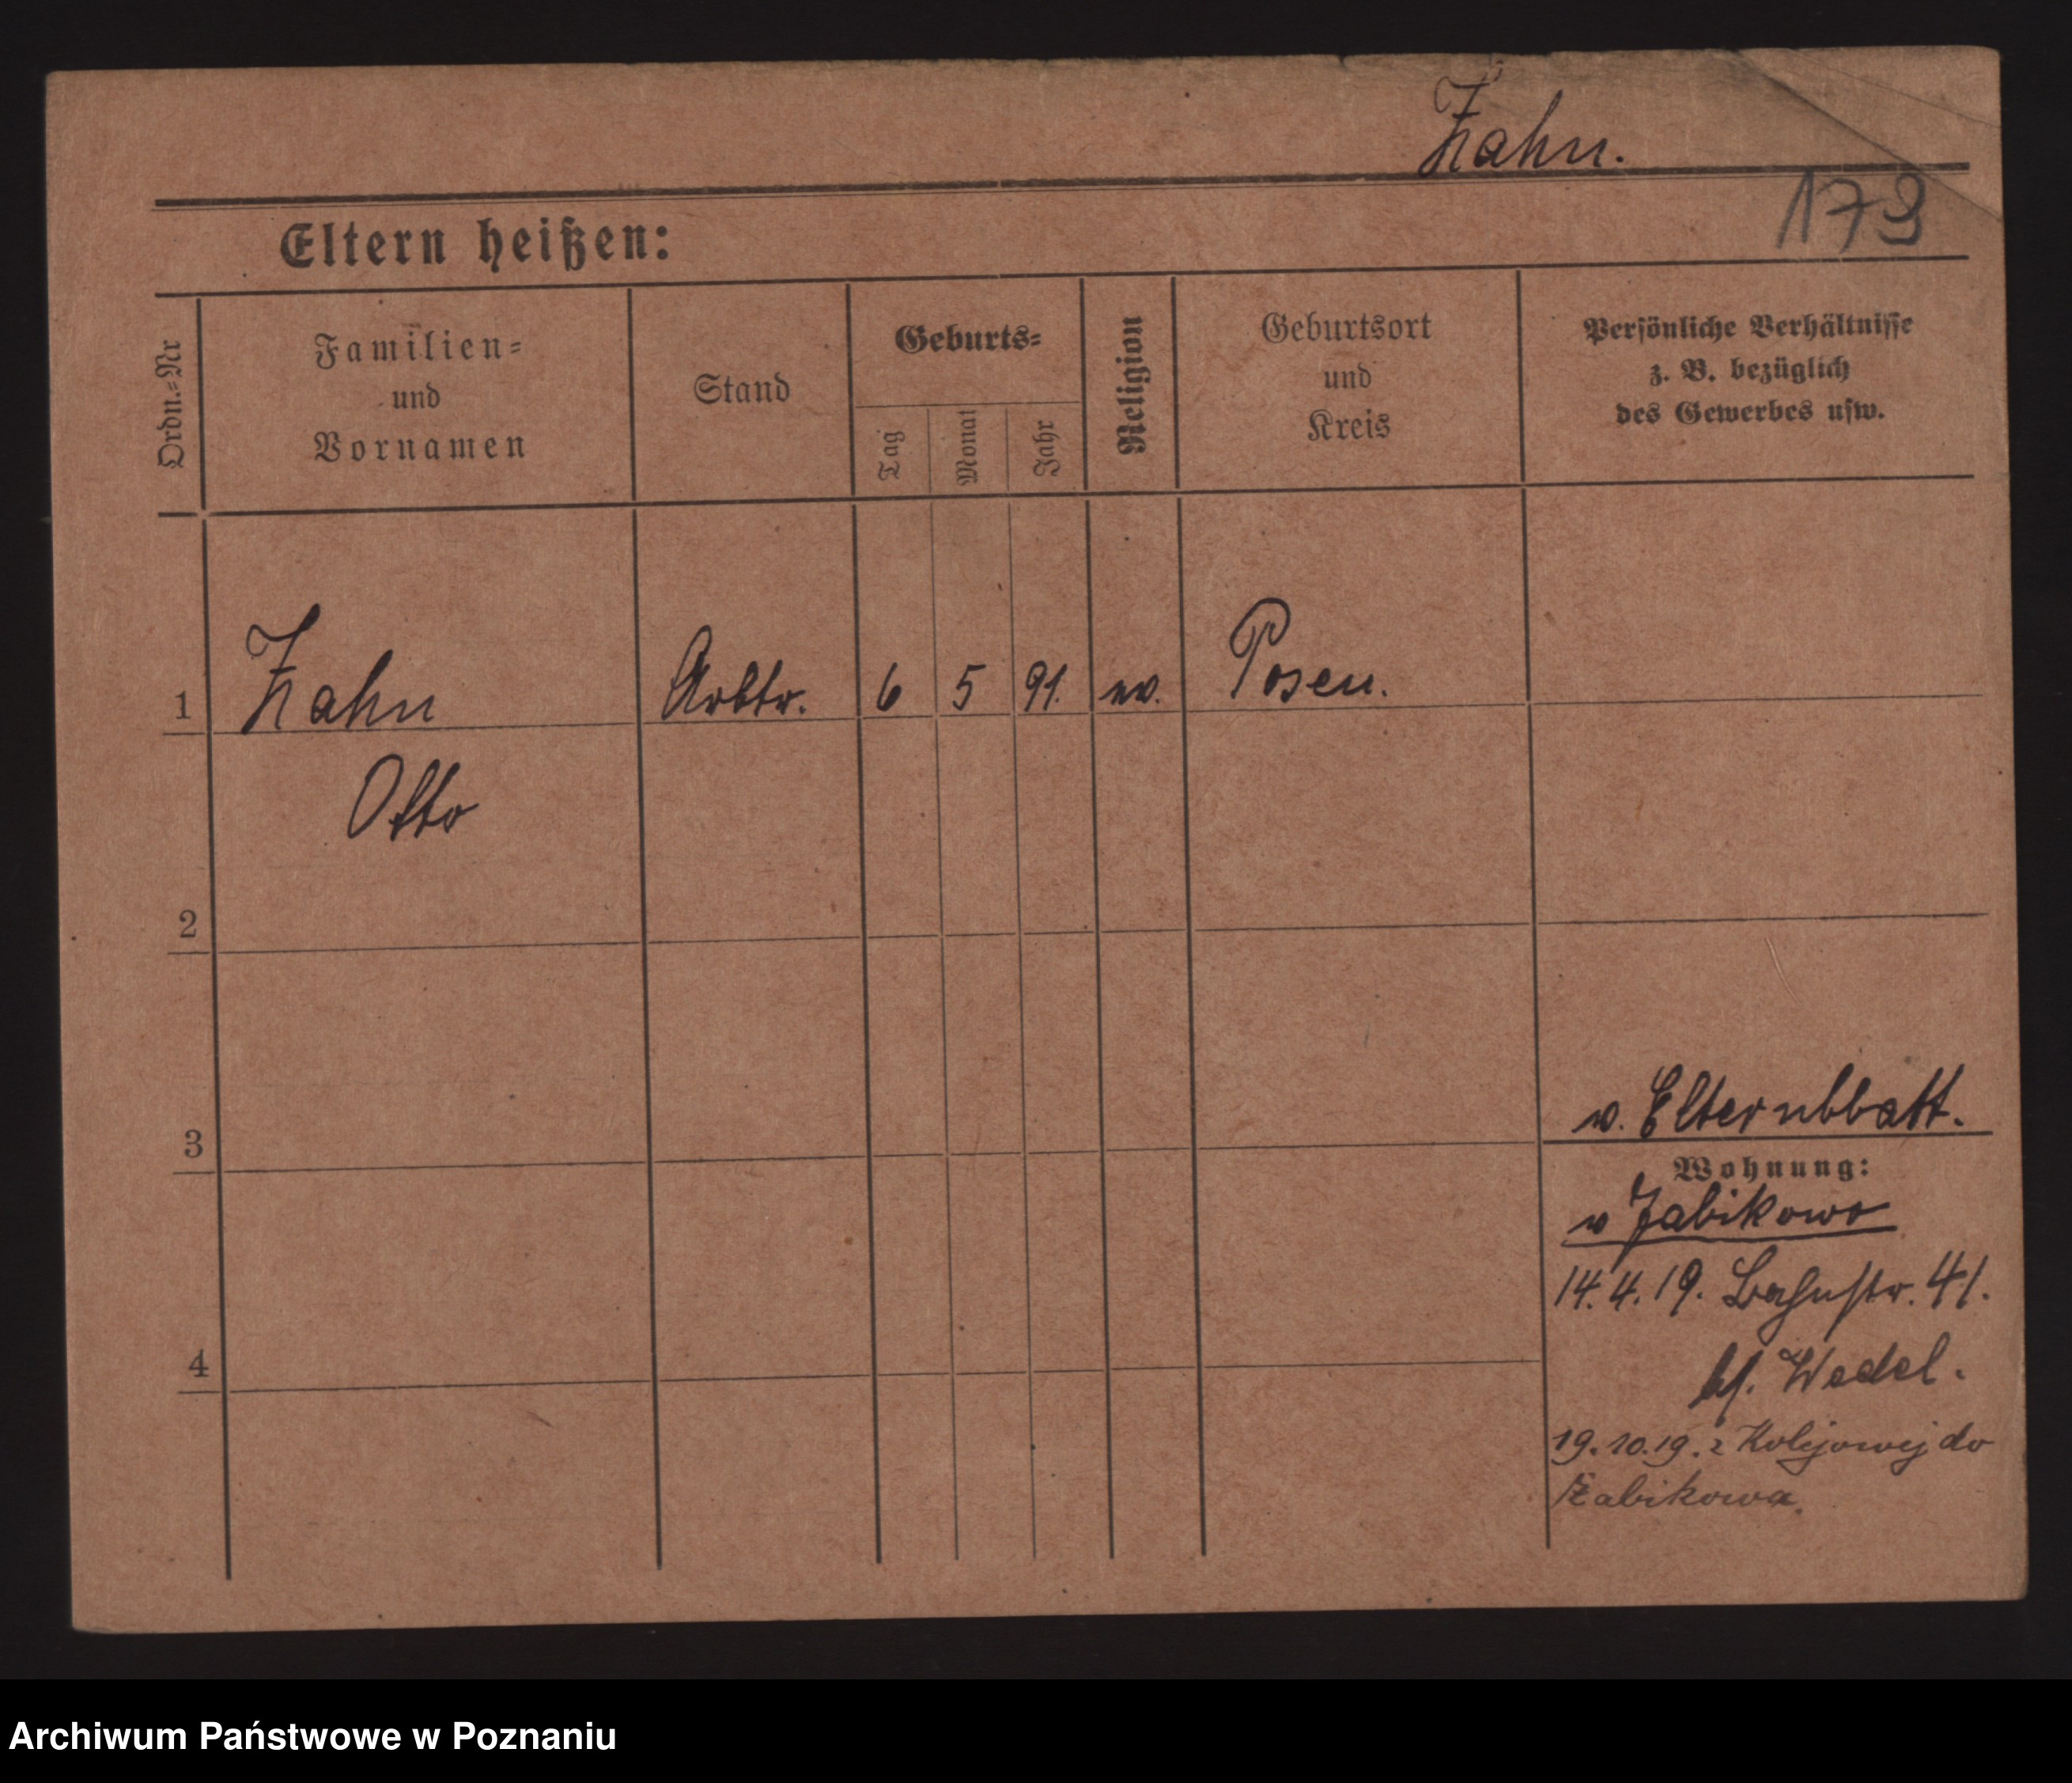 Zahn.
173
Eltern heißen:
Ordn.-Nr
Familien-
und
Vornamen
Stand
Geburts-
Tag
Monat
Jahr
Religion
Geburtsort
und
Kreis
Persönliche Verhältnisse
z. B. bezüglich
des Gewerbes usw.
1 Zahn Arbtr. 6 5 91. ev. Posen.
Otto
2
3
v. Elternbbatt.
Wohnung:
v Zabikowo
14.4.19. Bahnstr. 41.
bf. Wedel.
4
19.10.19. z Kolejowej do
Żabikowa.
Archiwum Państwowe w Poznaniu